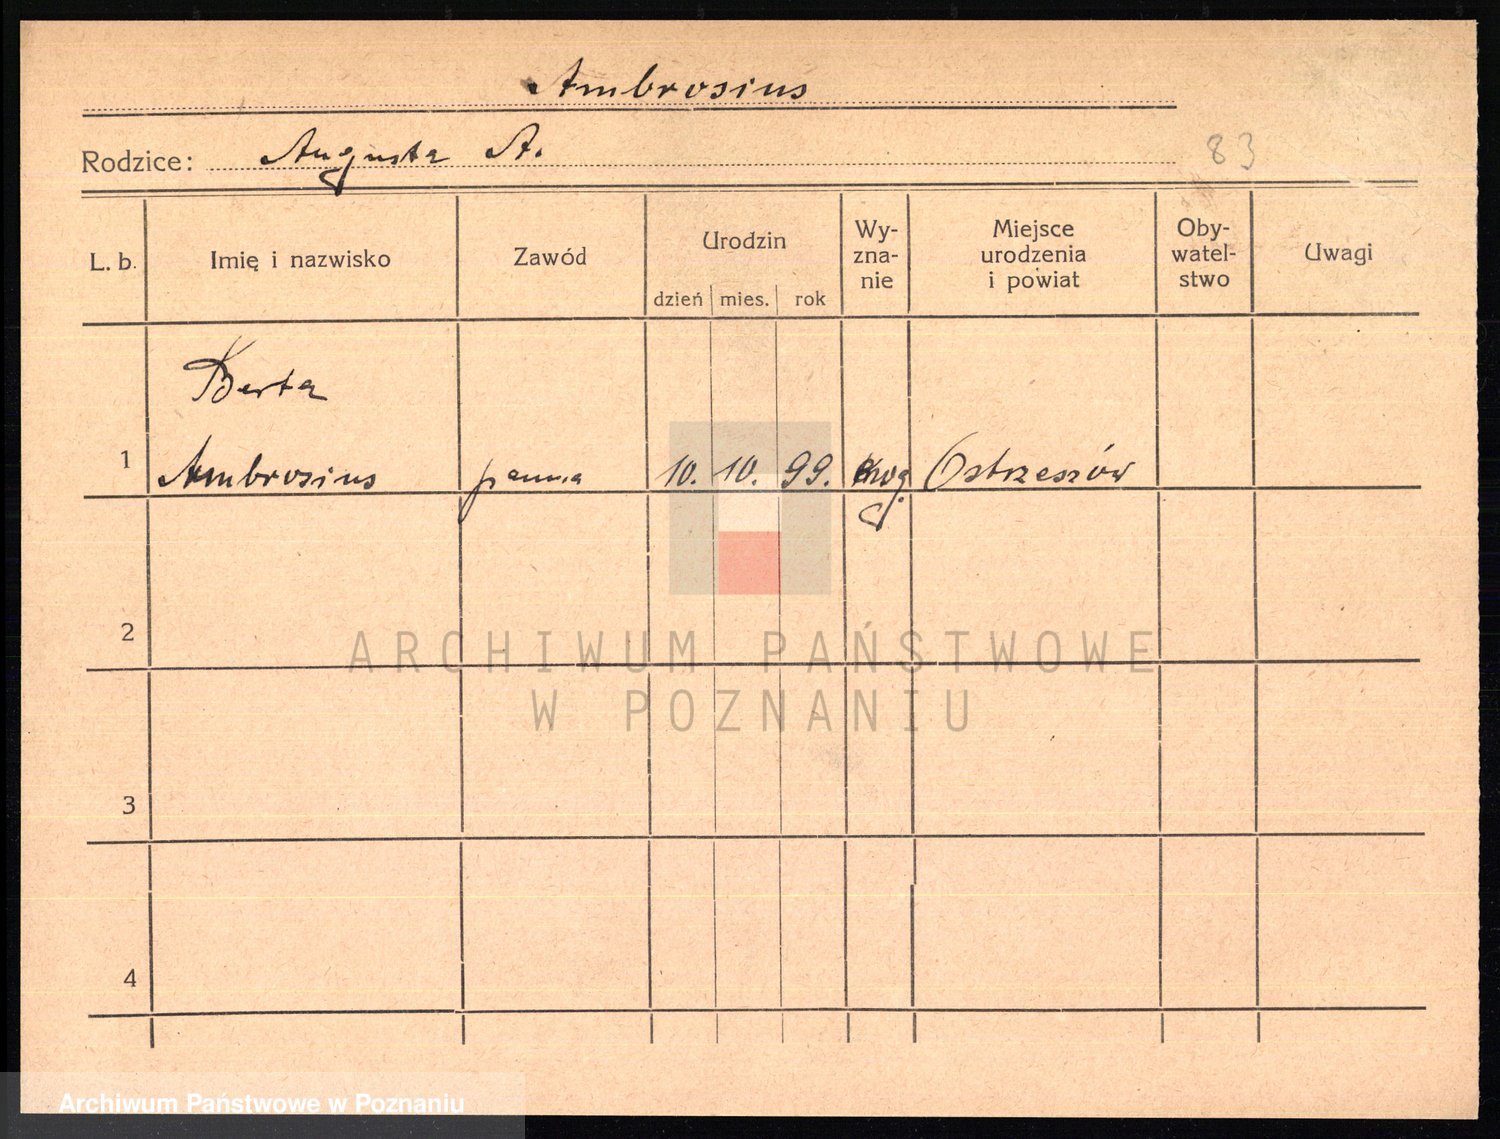 Ambrosius
Rodzice: Augusta A.
83
L. b.
Imię i nazwisko
Zawód
Urodzin
dzień mies. rok
Wy-
zna-
nie
Miejsce
urodzenia
i powiat
Oby-
watel-
stwo
Uwagi
Berta
1 Ambrosius panna 10. 10. 99. Ostrzeszów
2
3
4
ARCHIWUM PAŃSTWOWE
W POZNANIU
Archiwum Państwowe w Poznaniu